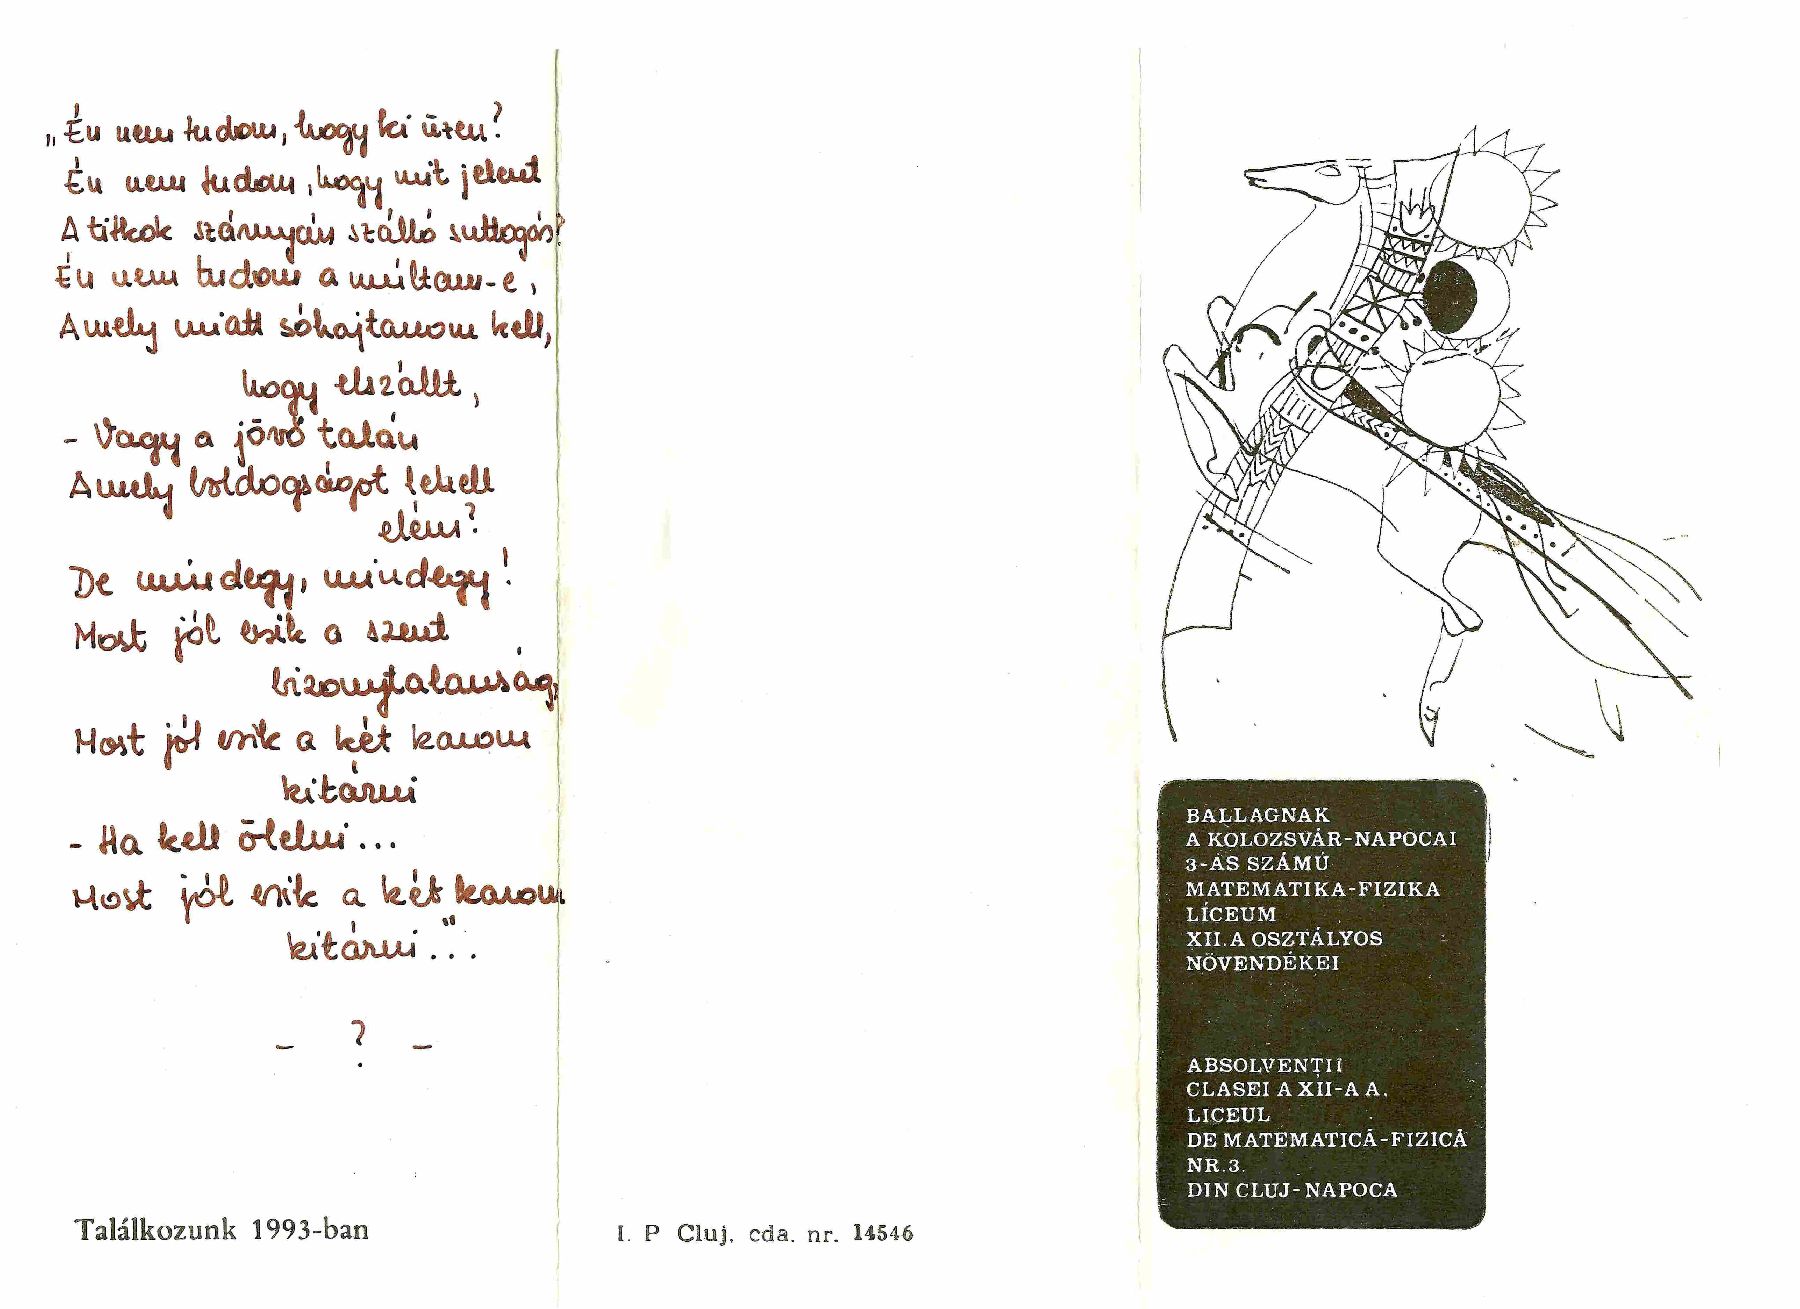 „Én nem tudom, hogy ki üzen?
Én nem tudom, hogy mit jelent
A titkok szárnyán szálló suttogás?
Én nem tudom a múltam-e,
Amely miatt sóhajtanom kell,
hogy elszállt,
- Vagy a jövő talán
Amely boldogságot lehell
elém?
De mindegy, mindegy!
Most jól esik a szent
bizonytalanság,
Most jól esik a két karom
kitárni
- Ha kell ölelni...
Most jól esik a két karom
kitárni"...
- ? -
Találkozunk 1993-ban
I. P Cluj, cda. nr. 14546
BALLAGNAK
A KOLOZSVÁR-NAPOCAI
3-AS SZÁMÚ
MATEMATIKA-FIZIKA
LÍCEUM
XII. A OSZTÁLYOS
NÖVENDÉKEI
ABSOLVENȚII
CLASEI A XII-A A.
LICEUL
DE MATEMATICĂ-FIZICĂ
NR.3.
DIN CLUJ-NAPOCA